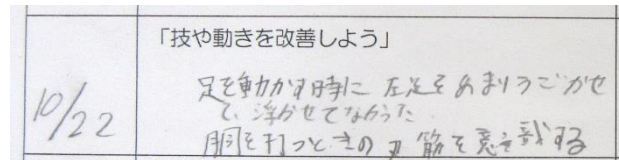 「技や動きを改善しよう」
10/22
足を動かす時に 左足をあまりうごかせ
て、浮かせてなかった
胴を打つときの刃筋を意識する